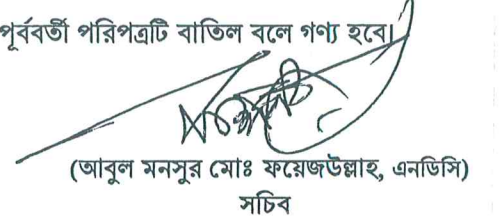 পূর্ববর্তী পরিপত্রটি বাতিল বলে গণ্য হবে।
(আবুল মনসুর মোঃ ফয়েজউল্লাহ, এনডিসি)
সচিব